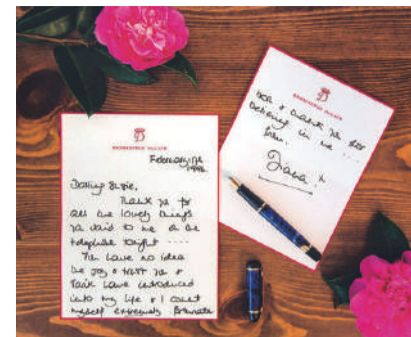 KENSINGTON PALACE
February 17th
1996.
Darling Susie,
Thank you for
all the lovely things
you said to me on the
telephone tonight ----
You have no idea
the joy & trust you &
have introduced
into my life & I count
myself extremely fortunate
KENSINGTON PALACE
& thank you for
believing in me ...
from,
Diana.